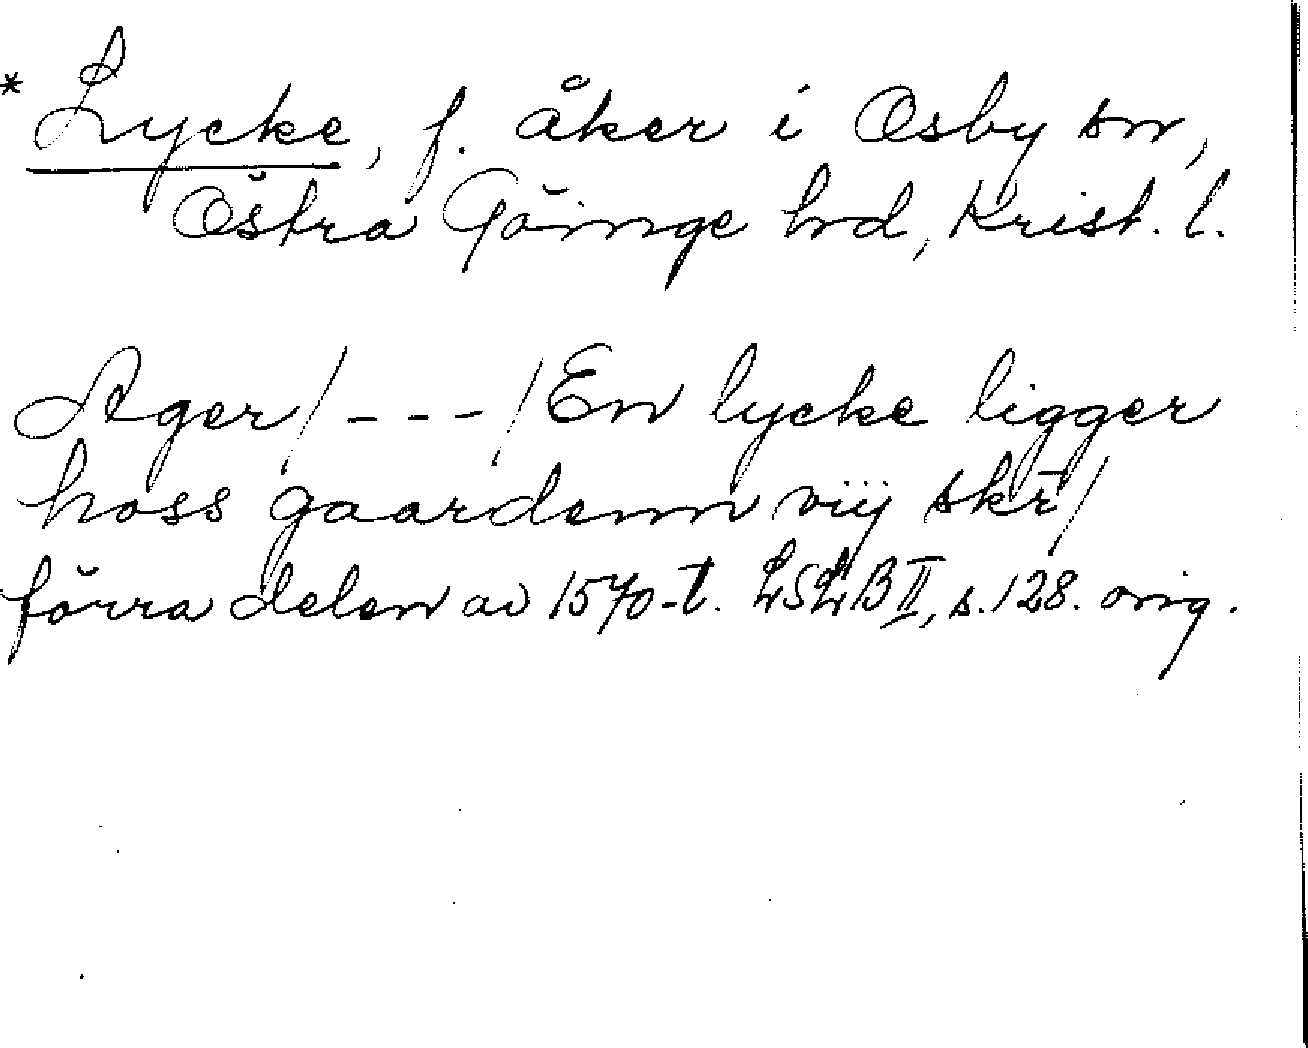 * Lycke, f. åker i Osby sn,
Östra Göinge hrd, Krist. l.
Ager/ - - - /En lycke ligger
hoss gaardenn viij skr̄/
förra delen av 1570-t. LSLB II, s. 128. orig.